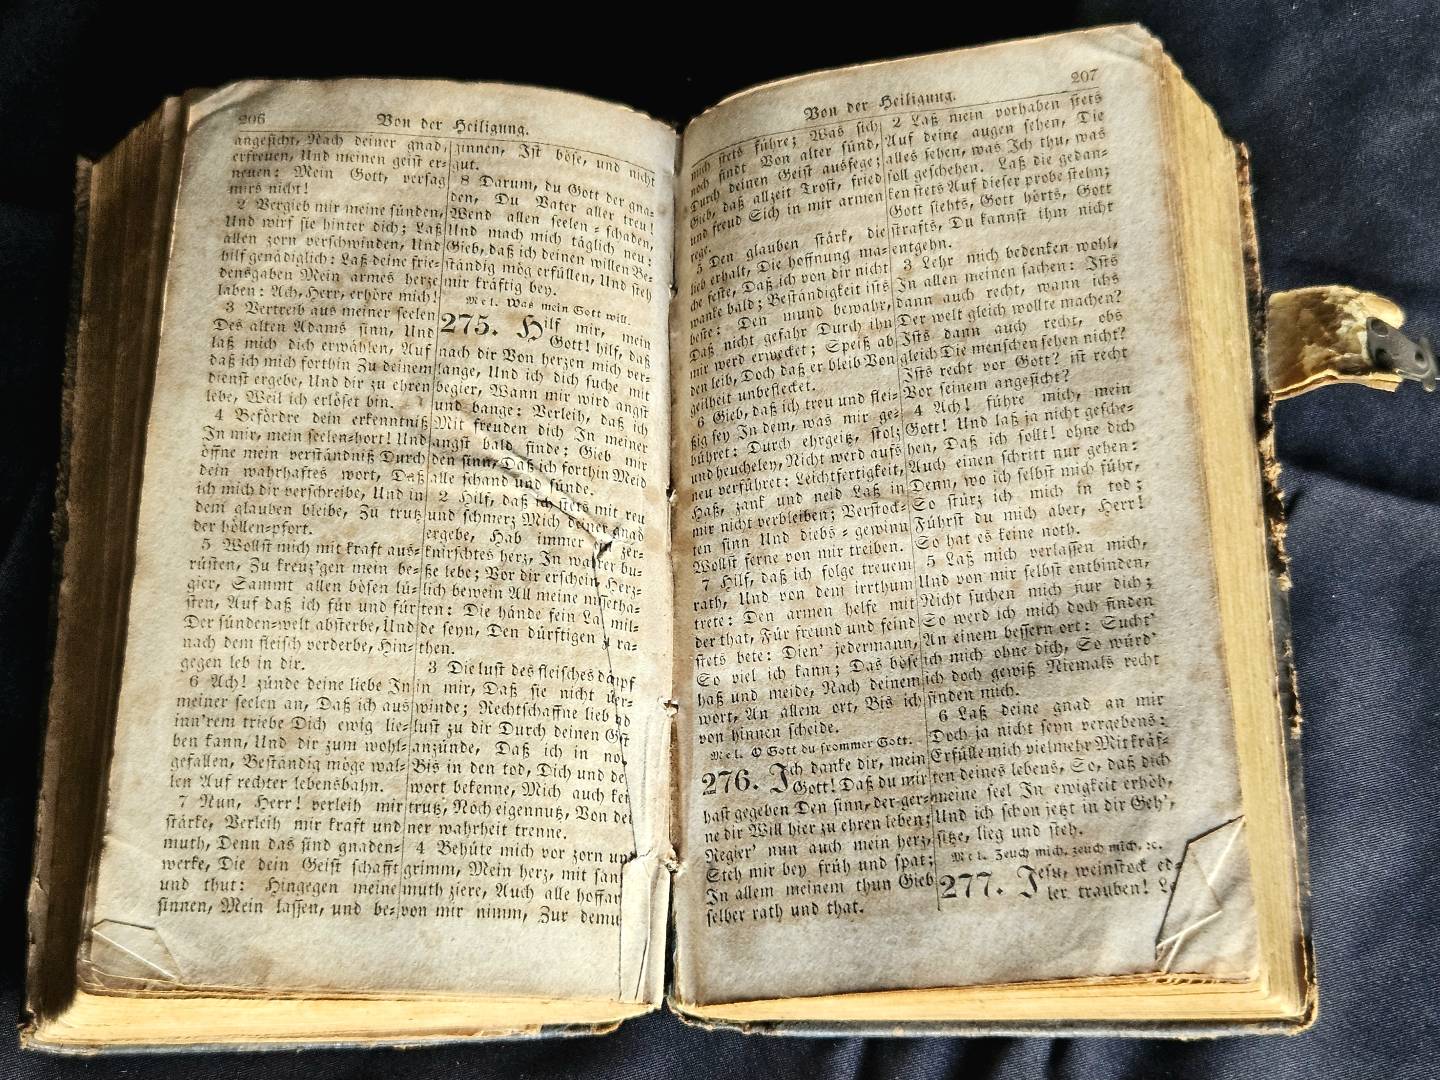 206
Von der Heiligung.
angesicht, Nach deiner gnad
erfreuen, Und meinen geist er-
neuen: Mein Gott, versag
mirs nicht!
2 Vergieb mir meine sünden,
Und wirf sie hinter dich; Laß
allen zorn verschwinden, Und
hilf genädiglich: Laß deine frie-
densgaben Mein armes herze
laben: Ach, Herr, erhöre mich!
3 Vertreib aus meiner seelen
Des alten Adams sinn, Und
laß mich dich erwählen, Auf
daß ich mich forthin Zu deinem
dienst ergebe, Und dir zu ehren
lebe, Weil ich erlöset bin.
4 Befördre dein erkenntniß
In mir, mein seelen-hort! Und
öffne mein verständniß Durch
dein wahrhaftes wort, Daß
ich mich dir verschreibe, Und in
dem glauben bleibe, Zu trutz
der höllen-pfort.
5 Wollst mich mit kraft aus-
rüsten, Zu kreuz'gen mein be-
gier, Sammt allen bösen lü-
sten, Auf daß ich für und für
Der sünden-welt absterbe, Und
nach dem fleisch verderbe, Hin-
gegen leb in dir.
6 Ach! zünde deine liebe In
meiner seelen an, Daß ich aus
inn'rem triebe Dich ewig lie-
ben kann, Und dir zum wohl-
gefallen, Beständig möge wal-
len Auf rechter lebensbahn.
7 Nun, Herr! verleih mir
stärke, Verleih mir kraft und
muth, Denn das sind gnaden-
werke, Die dein Geist schafft
und thut: Hingegen meine
sinnen, Mein lassen, und be-
ginnen, Ist böse, und nicht
gut.
8 Darum, du Gott der gna-
den, Du Vater aller treu!
Wend allen seelen-schaden,
Und mach mich täglich neu:
Gieb, daß ich deinen willen Be-
ständig mög erfüllen, Und steh
mir kräftig bey.
Mel. Was mein Gott will.
275. Hilf mir, mein
Gott! hilf, daß
nach dir Von herzen mich ver-
lange, Und ich dich suche mit
begier, Wann mir wird angst
und bange: Verleih, daß ich
Mit freuden dich In meiner
angst bald finde: Gieb mir
den sinn, Daß ich forthin Meid
alle schand und sünde.
2 Hilf, daß ich stets mit reu
und schmerz Mich deiner gnad
ergebe, Hab immer zer-
knirschtes herz, In wahrer bu-
ße lebe; Vor dir erschein, Herz-
lich bewein All meine missetha-
ten: Die hände sein Laß mil-
de seyn, Den dürftigen zu ra-
then.
3 Die lust des fleisches dämpf
in mir, Daß sie nicht über-
winde; Rechtschaffne lieb und
lust zu dir Durch deinen Geist
anzünde, Daß ich in noth
Bis in den tod, Dich und dein
wort bekenne, Mich auch kein
trutz, Noch eigennutz, Von dei-
ner wahrheit trenne.
4 Behüte mich vor zorn und
grimm, Mein herz, mit sanft-
muth ziere, Auch alle hoffart
von mir nimm, Zur demuth
207
Von der Heiligung.
mich stets führe; Was sich
noch findt Von alter sünd,
Durch deinen Geist ausfege;
Gieb, daß allzeit Trost, fried
und freud Sich in mir armen
rege.
5 Den glauben stärk, die
lieb erhalt, Die hoffnung ma-
che feste, Daß ich von dir nicht
wanke bald; Beständigkeit ists
beste: Den mund bewahr,
Daß nicht gefahr Durch ihn
mir werd erwecket; Speiß ab
den leib, Doch daß er bleib Von
geilheit unbeflecket.
6 Gieb, daß ich treu und flei-
ßig sey In dem, was mir ge-
bühret: Durch ehrgeitz, stolz
und heucheley, Nicht werd aufs
neu verführet: Leichtfertigkeit,
Haß, zank und neid Laß in
mir nicht verbleiben; Verstock-
ten sinn Und diebs-gewinn
Wollst ferne von mir treiben.
7 Hilf, daß ich folge treuem
rath, Und von dem irrthum
trete: Den armen helfe mit
der that, Für freund und feind
stets bete: Dien' jedermann,
So viel ich kann; Das böse
haß und meide, Nach deinem
wort, An allem ort, Bis ich
von hinnen scheide.
Mel. O Gott du frommer Gott.
276. Ich danke dir, mein
Gott! Daß du mir
hast gegeben Den sinn, der ger-
ne dir Will hier zu ehren leben;
Regier' nun auch mein herz,
Steh mir bey früh und spat;
In allem meinem thun Gieb
selber rath und that.
2 Laß mein vorhaben stets
Auf deine augen sehen, Die
alles sehen, was Ich thu, was
soll geschehen. Laß die gedan-
ken stets Auf dieser probe stehn;
Gott siehts, Gott hörts, Gott
strafts, Du kannst ihm nicht
entgehn.
3 Lehr mich bedenken wohl,
In allen meinen sachen: Ists
dann auch recht, wann ichs
Der welt gleich wollte machen?
Ists dann auch recht, obs
gleich Die menschen sehen nicht?
Ists recht vor Gott? ist recht
Vor seinem angesicht?
4 Ach! führe mich, mein
Gott! Und laß ja nicht gesche-
hen, Daß ich sollt! ohne dich
Auch einen schritt nur gehen:
Denn, wo ich selbst mich führ,
So stürz ich mich in tod;
Führst du mich aber, Herr!
So hat es keine noth.
5 Laß mich verlassen mich,
Und von mir selbst entbinden,
Nicht suchen mich nur dich;
So werd ich mich doch finden
An einem bessern ort: Sucht'
ich mich ohne dich, So würd'
ich doch gewiß Niemals recht
finden mich.
6 Laß deine gnad an mir
Doch ja nicht seyn vergebens:
Erfülle mich vielmehr Mit kräf-
ten deines lebens, So, daß dich
meine seel In ewigkeit erhöh,
Und ich schon jetzt in dir Geh',
sitze, lieg und steh.
Mel. Zeuch mich, zeuch mich, ꝛc.
277. Jesu, weinstock ed-
ler trauben!